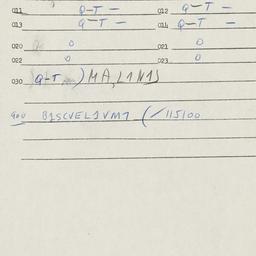 011 Q-T - 012 Q-T -
013 Q-T - 014 Q-T -
020 0 021 0
022 0 023 0
030 (Q-T ) MA,L1N1S
900 B1SCVEL1VM1 (/115/00